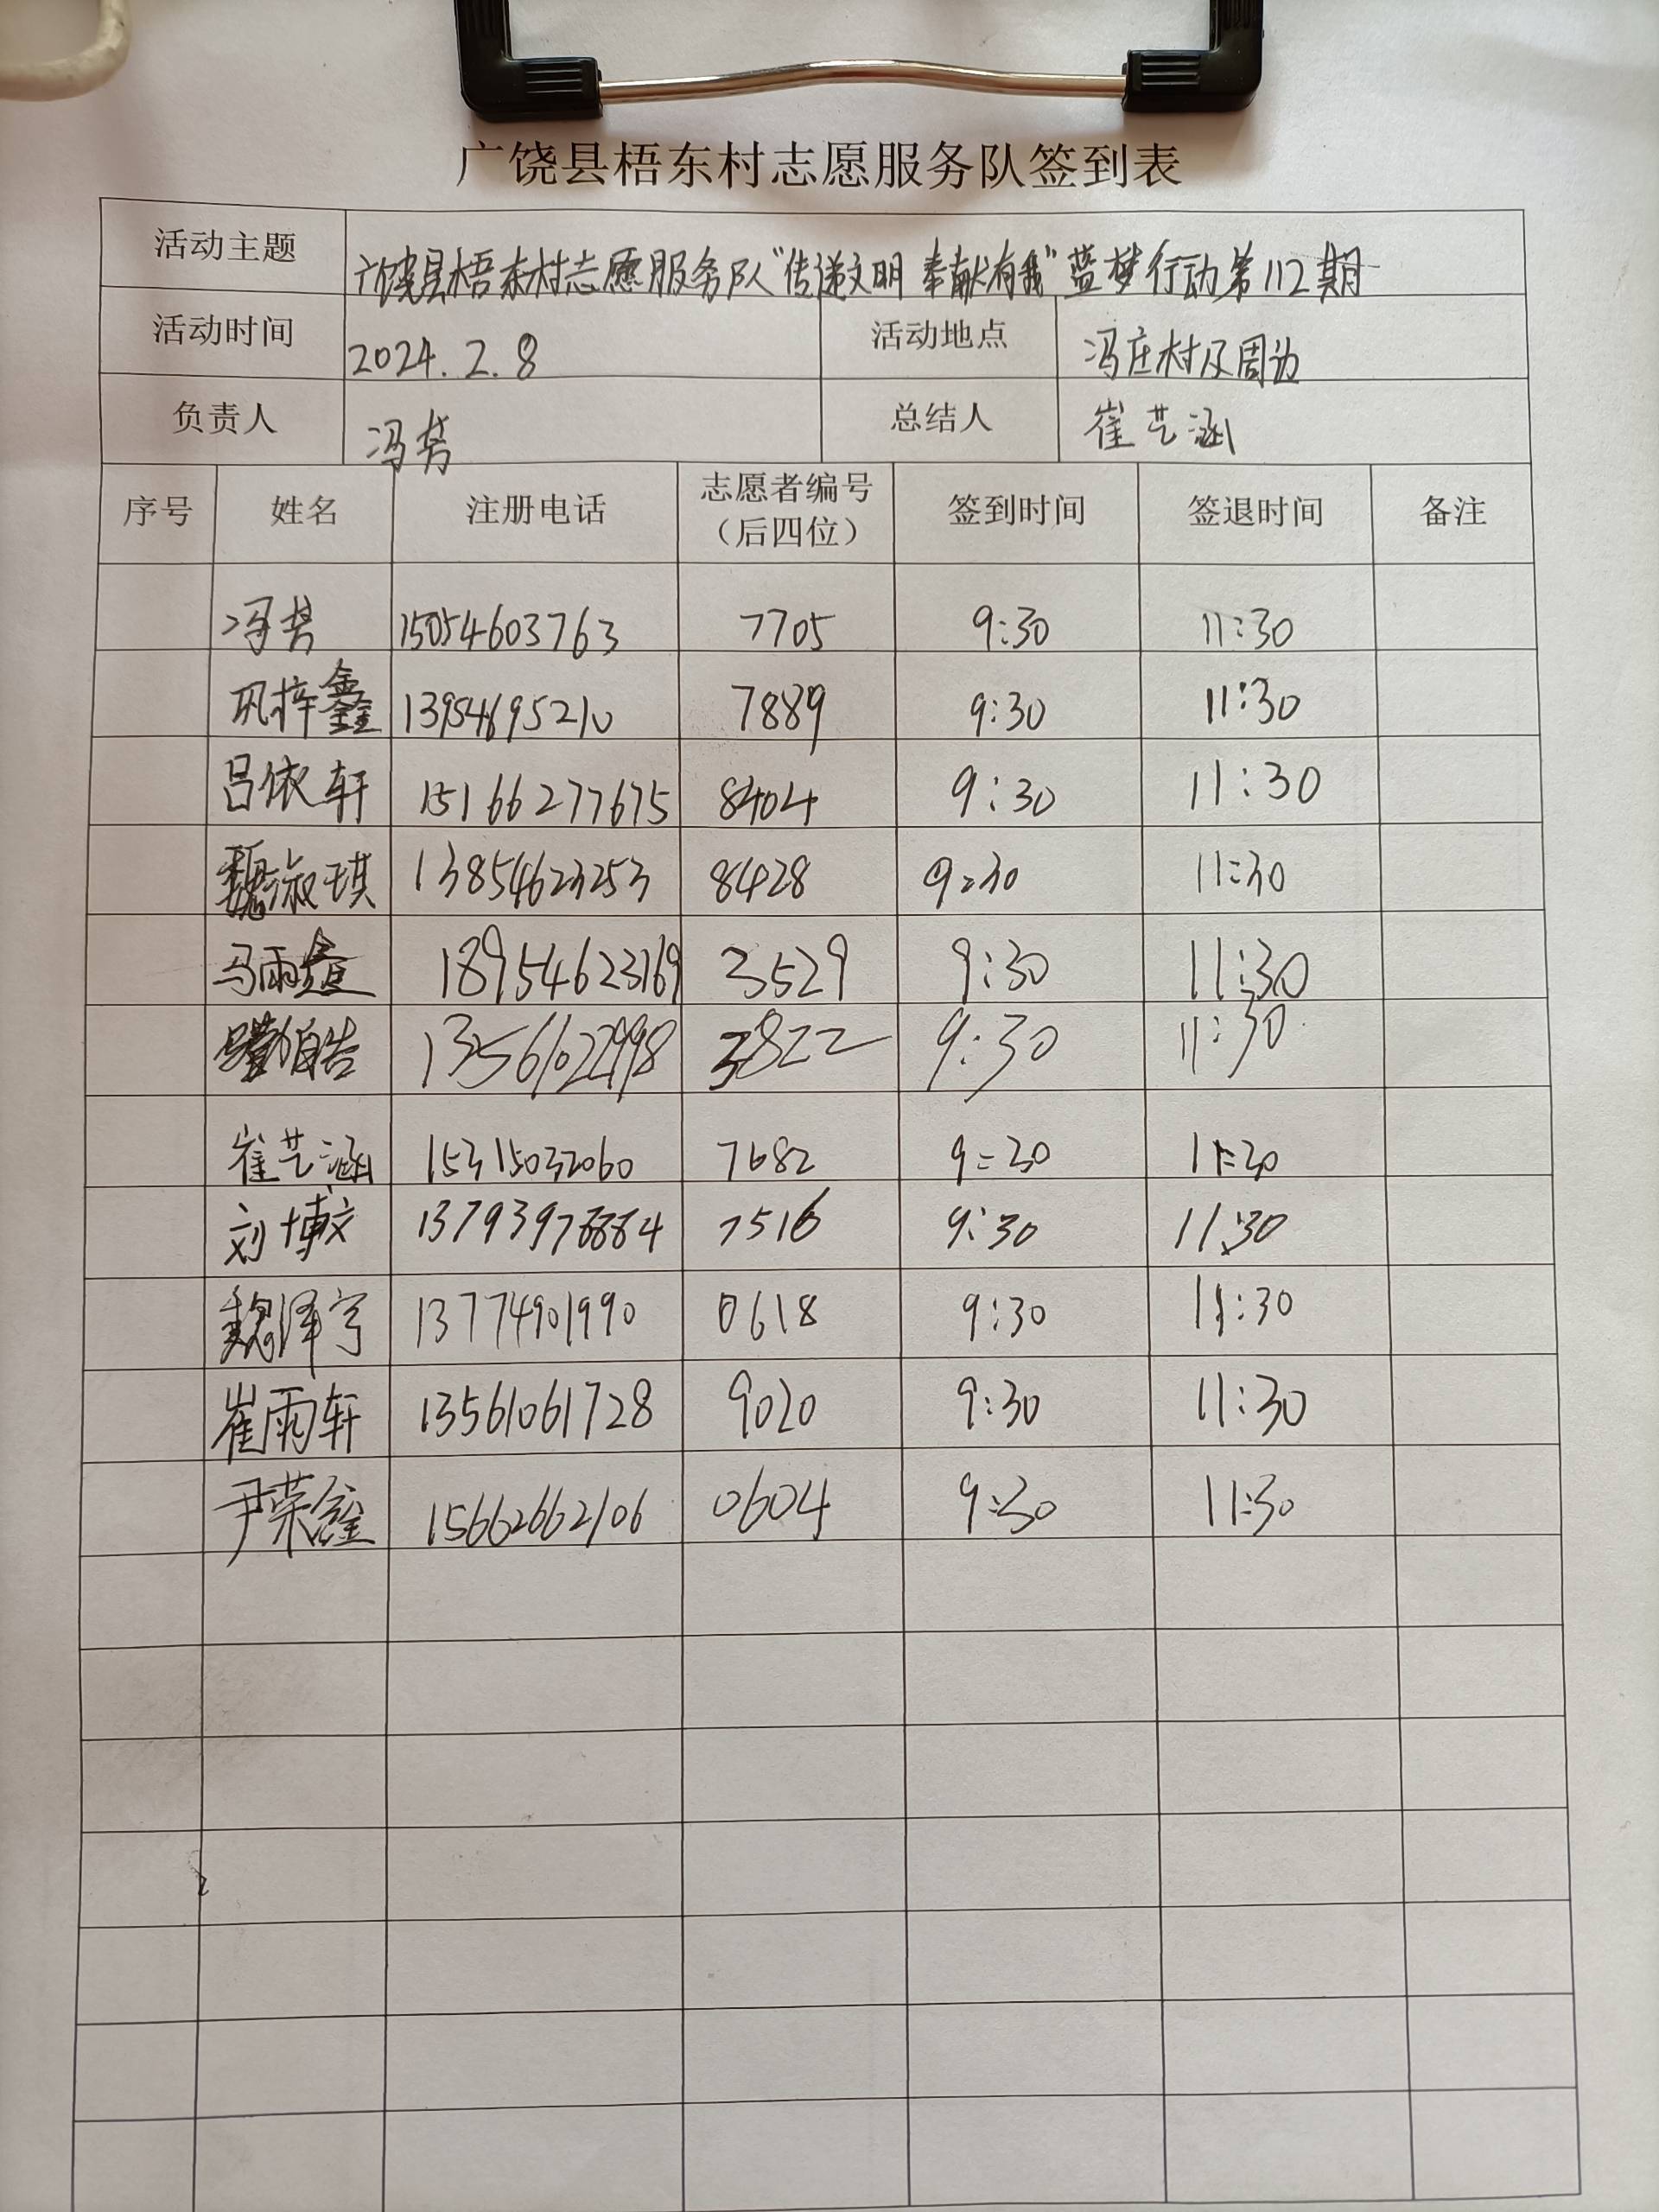 广饶县梧东村志愿服务队签到表
活动主题 广饶县梧东村志愿服务队“传递文明 奉献有我”蓝梦行动第112期
活动时间 2024.2.8 活动地点 冯庄村及周边
负责人 冯 总结人 崔艺涵
序号 姓名 注册电话 志愿者编号（后四位） 签到时间 签退时间 备注
冯 15054603763 7705 9:30 11:30
巩梓鑫 13954695210 7889 9:30 11:30
吕依轩 15166277675 8404 9:30 11:30
魏淑琪 13854623253 8428 9:30 11:30
马雨 18954623169 3529 9:30 11:30
3822 9:30 11:30
崔艺涵 15315032060 7682 9:30 11:30
刘博文 7516 9:30 11:30
魏泽宇 13774901990 0618 9:30 11:30
崔雨轩 13561061728 9020 9:30 11:30
尹荣鑫 15662662106 0604 9:30 11:30